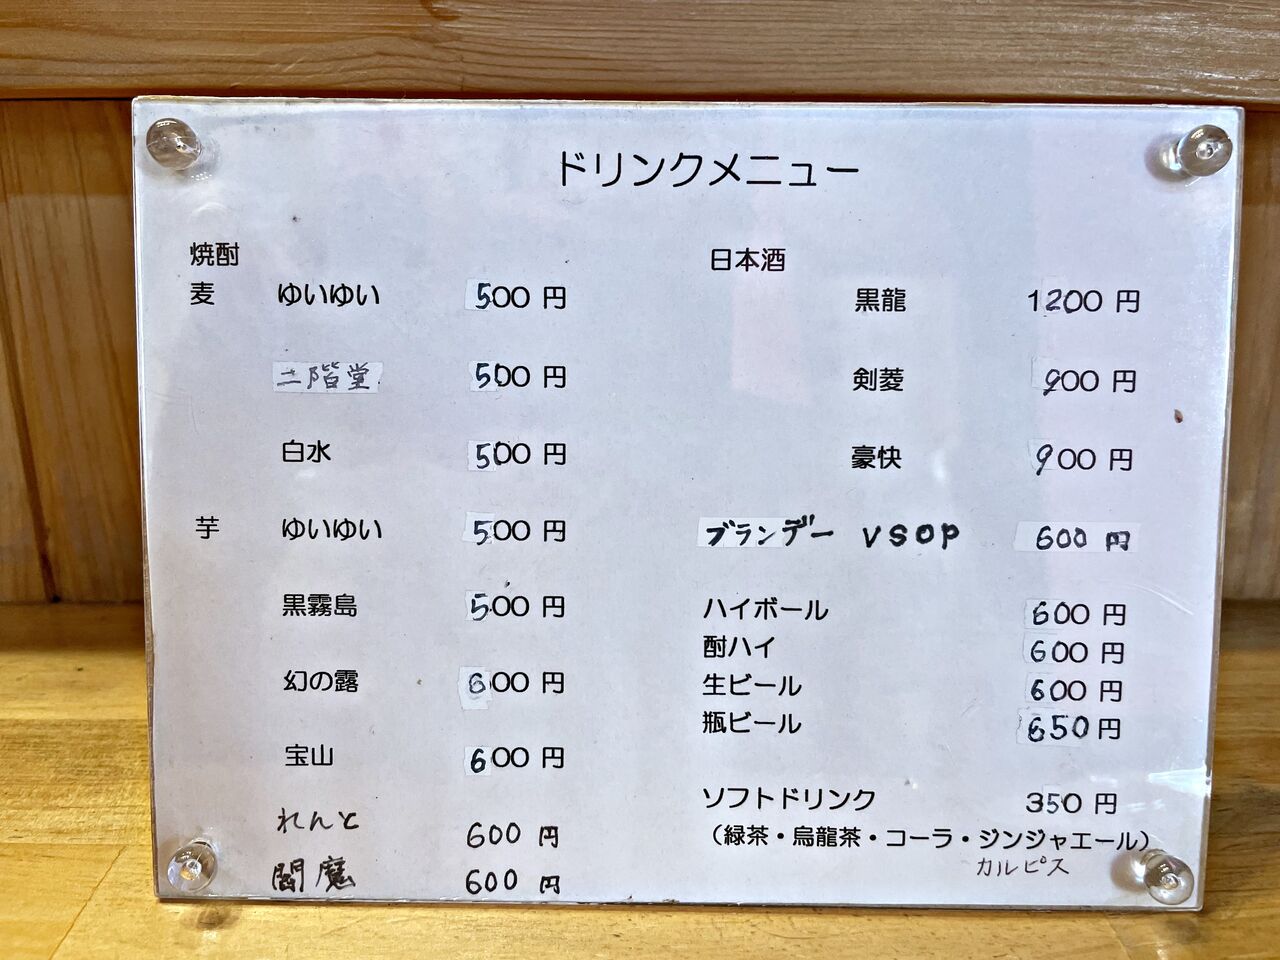 ドリンクメニュー
焼酎
麦 ゆいゆい 500 円
二階堂 500 円
白水 500 円
芋 ゆいゆい 500 円
黒霧島 500 円
幻の露 600 円
宝山 600 円
れんと 600 円
閻魔 600 円
日本酒
黒龍 1200 円
剣菱 900 円
豪快 900 円
ブランデー VSOP 600 円
ハイボール 600 円
酎ハイ 600 円
生ビール 600 円
瓶ビール 650 円
ソフトドリンク 350 円
（緑茶・烏龍茶・コーラ・ジンジャエール）
カルピス